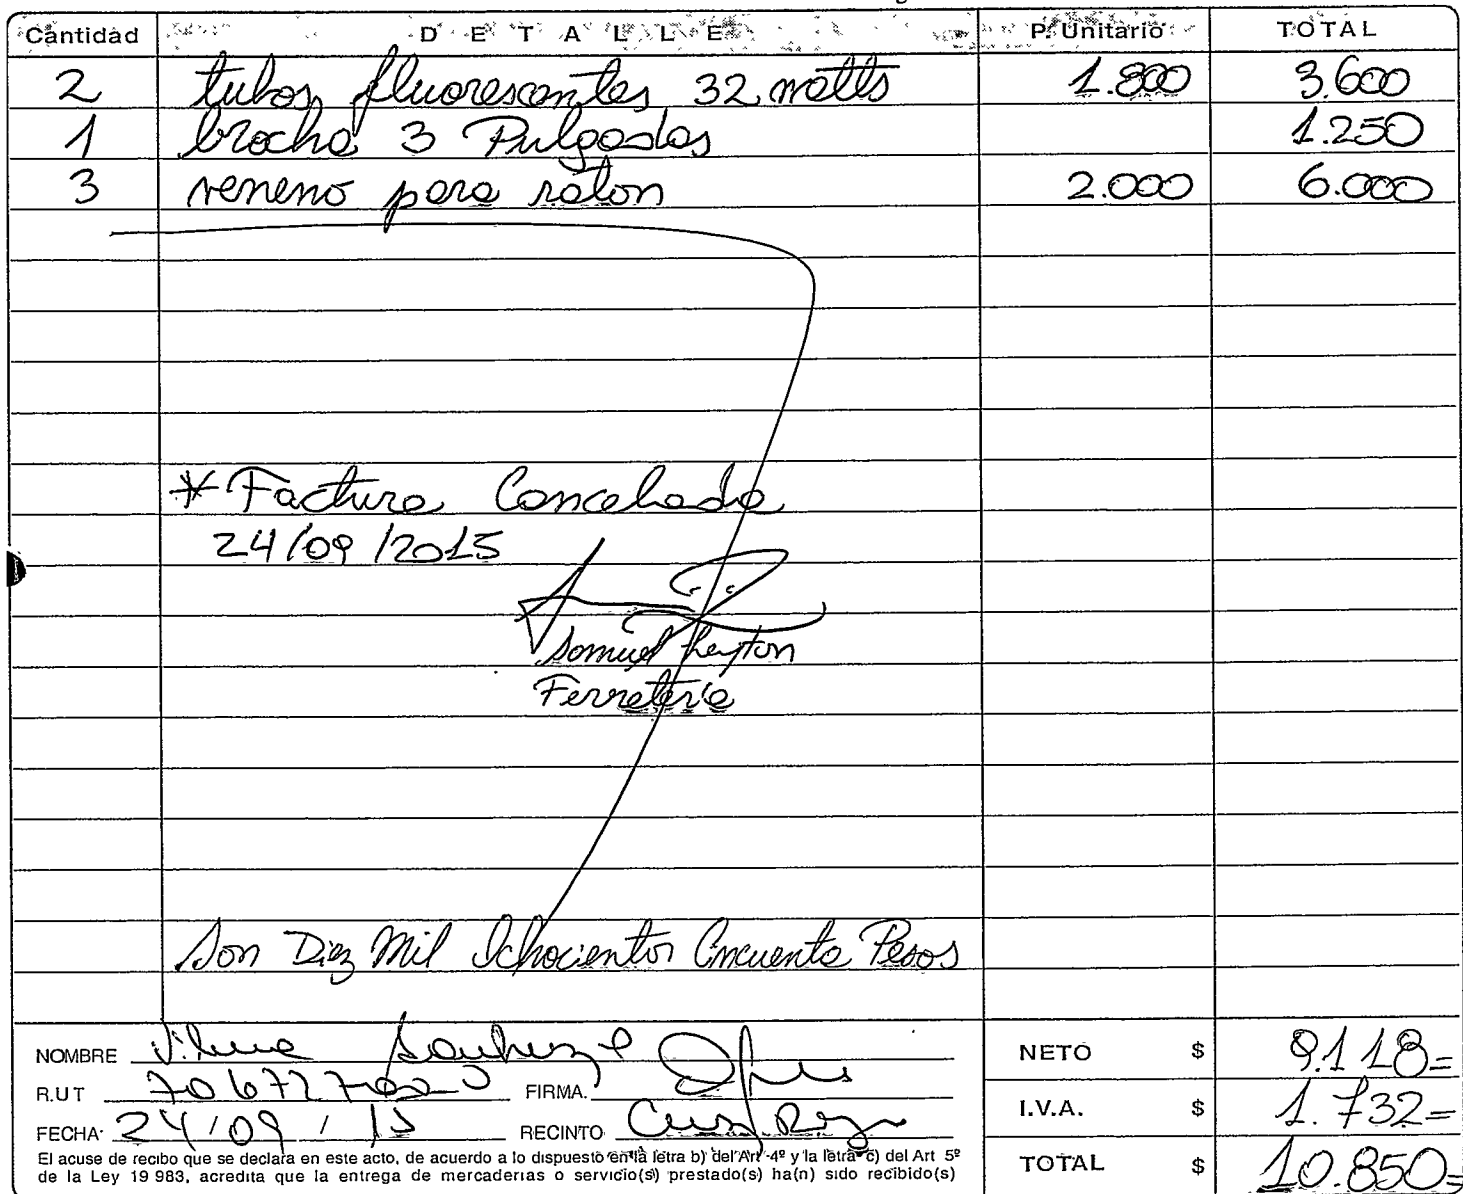 Cantidad DETALLE P. Unitario TOTAL
2 tubos fluorescentes 32 watts 1.800 3.600
1 brocha 3 Pulgadas 1.250
3 veneno para raton 2.000 6.000
* Factura Cancelada
24/09/2015
Samuel Leyton
Ferreteria
Son Diez Mil Ochocientos Cincuenta Pesos
NOMBRE Vilma Sanhueza
R.U.T FIRMA.
FECHA: 24/09/15 RECINTO Cruz Roja
El acuse de recibo que se declara en este acto, de acuerdo a lo dispuesto en la letra b) del Art 4º y la letra c) del Art 5º
de la Ley 19 983, acredita que la entrega de mercaderias o servicio(s) prestado(s) ha(n) sido recibido(s)
NETO $ 9.118=
I.V.A. $ 1.732=
TOTAL $ 10.850=